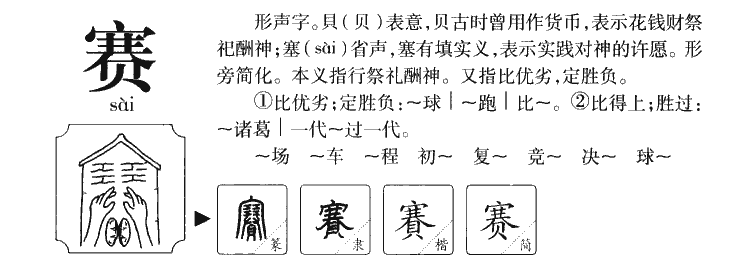 赛
sài
形声字。貝(贝)表意,贝古时曾用作货币,表示花钱财祭
祀酬神;塞(sài)省声,塞有填实义,表示实践对神的许愿。形
旁简化。本义指行祭礼酬神。又指比优劣,定胜负。
①比优劣;定胜负:~球|~跑|比~。②比得上;胜过:
~诸葛|一代~过一代。
~场 ~车 ~程 初~ 复~ 竞~ 决~ 球~
賽 篆 賽 隶 賽 楷 赛 简